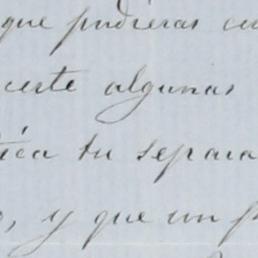 que pudieras
ceste algunas
tica tu separa
o, y que un p